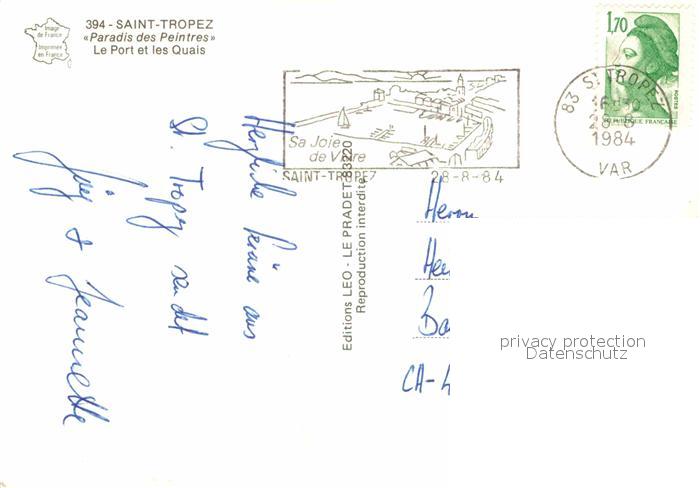 Image
de France
Imprimée
en France
394 - SAINT-TROPEZ
«Paradis des Peintres»
Le Port et les Quais
1,70
POSTES
REPUBLIQUE FRANÇAISE
83 ST TROPEZ
28-8
1984
VAR
Sa Joie
de Vivre
SAINT-TROPEZ 28-8-84
Herzliche Grüsse aus
St. Tropez sendet
Jörg & Jeannette
Editions LEO - LE PRADET 83220
Reproduction interdite
Herrn
Ba
CA-
privacy protection
Datenschutz